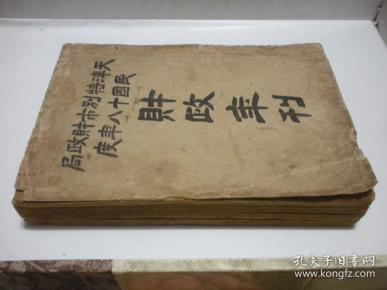 天津特別市財政局
民國十八年度
財政年刊
孔夫子旧书网
www.kongfz.com